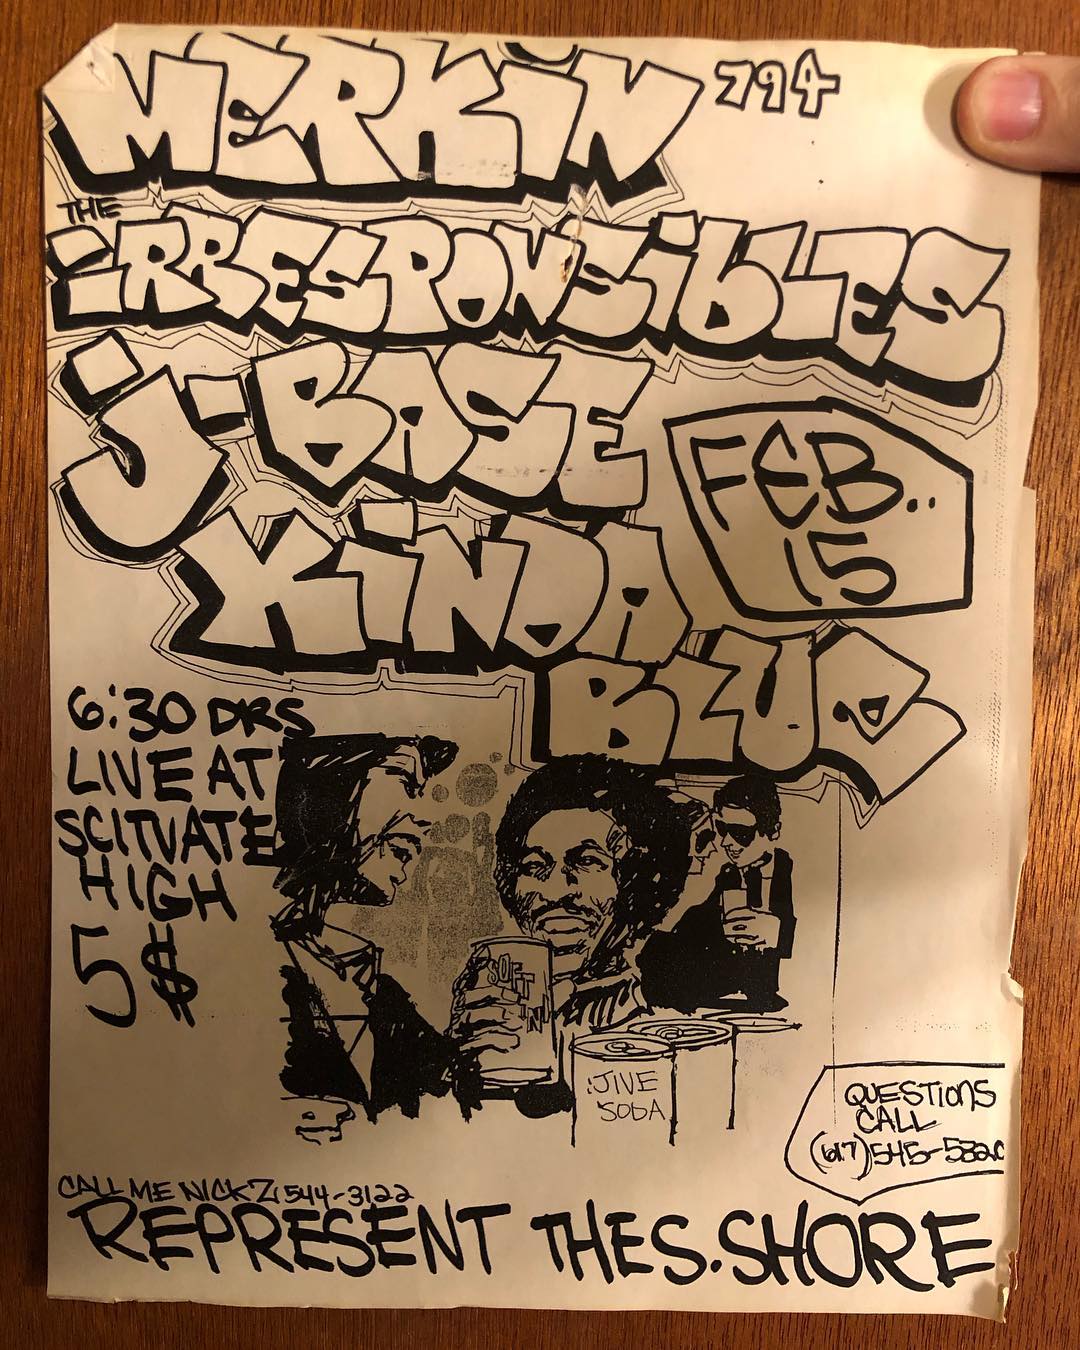 MERKiN 794
THE
iRRESPONSibLES
J-BASE
KiNDA
BLUE
FEB..
15
6:30 DRS
LIVE AT
SCITUATE
HIGH
5$
SOFT
'N'
JIVE
SODA
QUESTIONS
CALL
(617) 545-582
CALL ME NICKZ 544-3122
REPRESENT THE S. SHORE